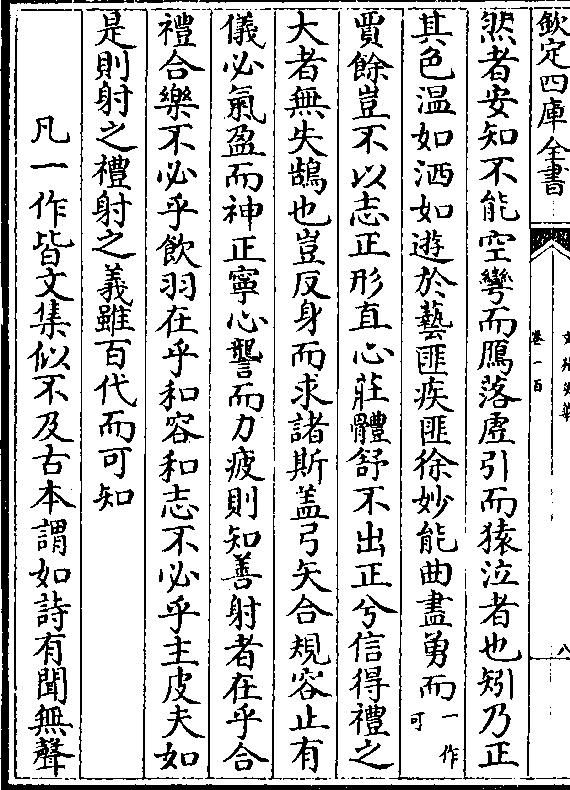 欽定四庫全書
卷一百
八
然者安知不能空彎而鴈落虛引而猿泣者也矧乃正
其色温如洒如遊於藝匪疾匪徐妙能曲盡勇而一作可
賈餘豈不以志正形直心莊體舒不出正兮信得禮之
大者無失鵠也豈反身而求諸斯盖弓矢合規容止有
儀必氣盈而神正寧心讋而力疲則知善射者在乎合
禮合樂不必乎飲羽在乎和容和志不必乎主皮夫如
是則射之禮射之義雖百代而可知
凡一作皆文集似不及古本謂如詩有聞無聲